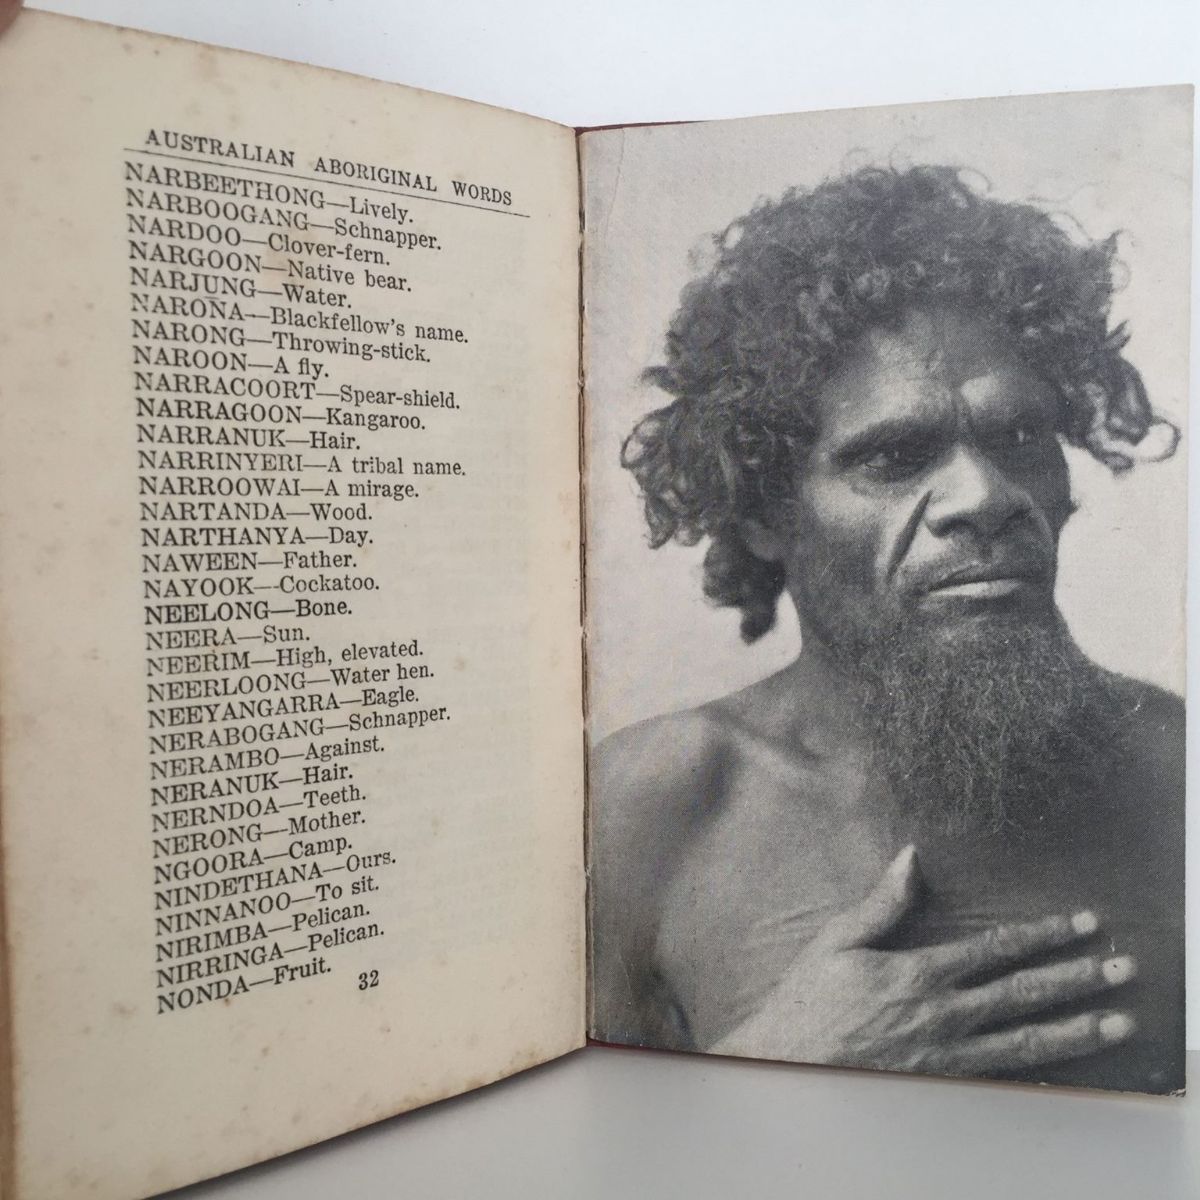 AUSTRALIAN ABORIGINAL WORDS
NARBEETHONG—Lively.
NARBOOGANG—Schnapper.
NARDOO—Clover-fern.
NARGOON—Native bear.
NARJUNG—Water.
NARONA—Blackfellow's name.
NARONG—Throwing-stick.
NAROON—A fly.
NARRACOORT—Spear-shield.
NARRAGOON—Kangaroo.
NARRANUK—Hair.
NARRINYERI—A tribal name.
NARROOWAI—A mirage.
NARTANDA—Wood.
NARTHANYA—Day.
NAWEEN—Father.
NAYOOK—Cockatoo.
NEELONG—Bone.
NEERA—Sun.
NEERIM—High, elevated.
NEERLOONG—Water hen.
NEEYANGARRA—Eagle.
NERABOGANG—Schnapper.
NERAMBO—Against.
NERANUK—Hair.
NERNDOA—Teeth.
NERONG—Mother.
NGOORA—Camp.
NINDETHANA—Ours.
NINNANOO—To sit.
NIRIMBA—Pelican.
NIRRINGA—Pelican.
NONDA—Fruit.
32